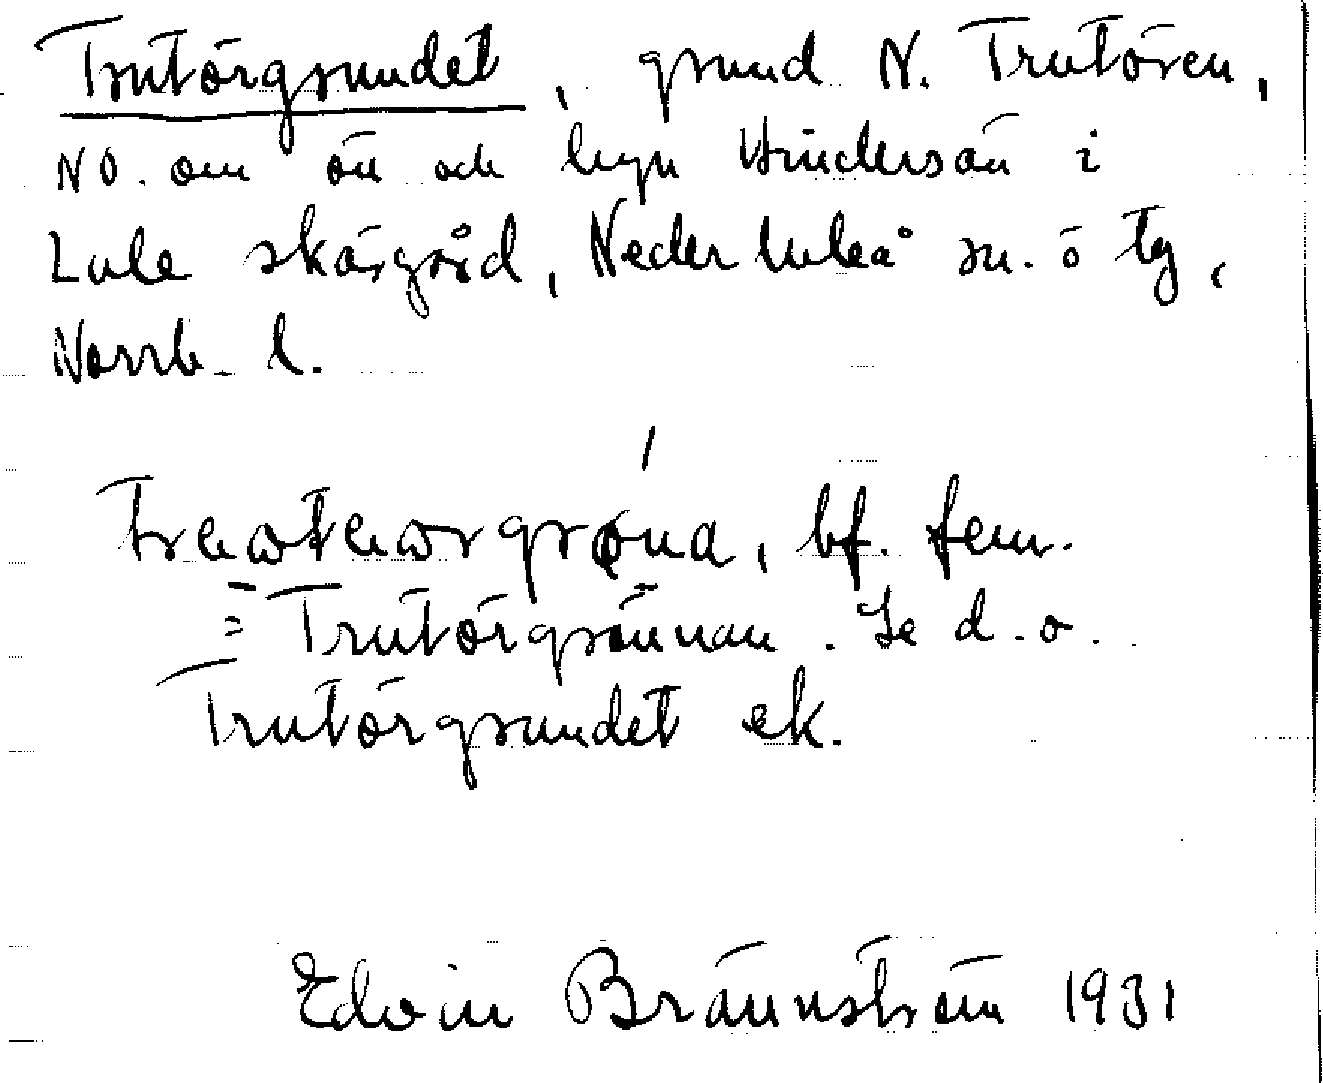 Trutörgrundet, grund N. Trutören,
NO. om ön och byn Hindersön i
Lule skärgård, Nederluleå sn. o tg,
Norrb. l.
bf. fem.
= Trutörgrönnan. Se d.o.
Trutörgrundet ek.
Edvin Brännström 1931